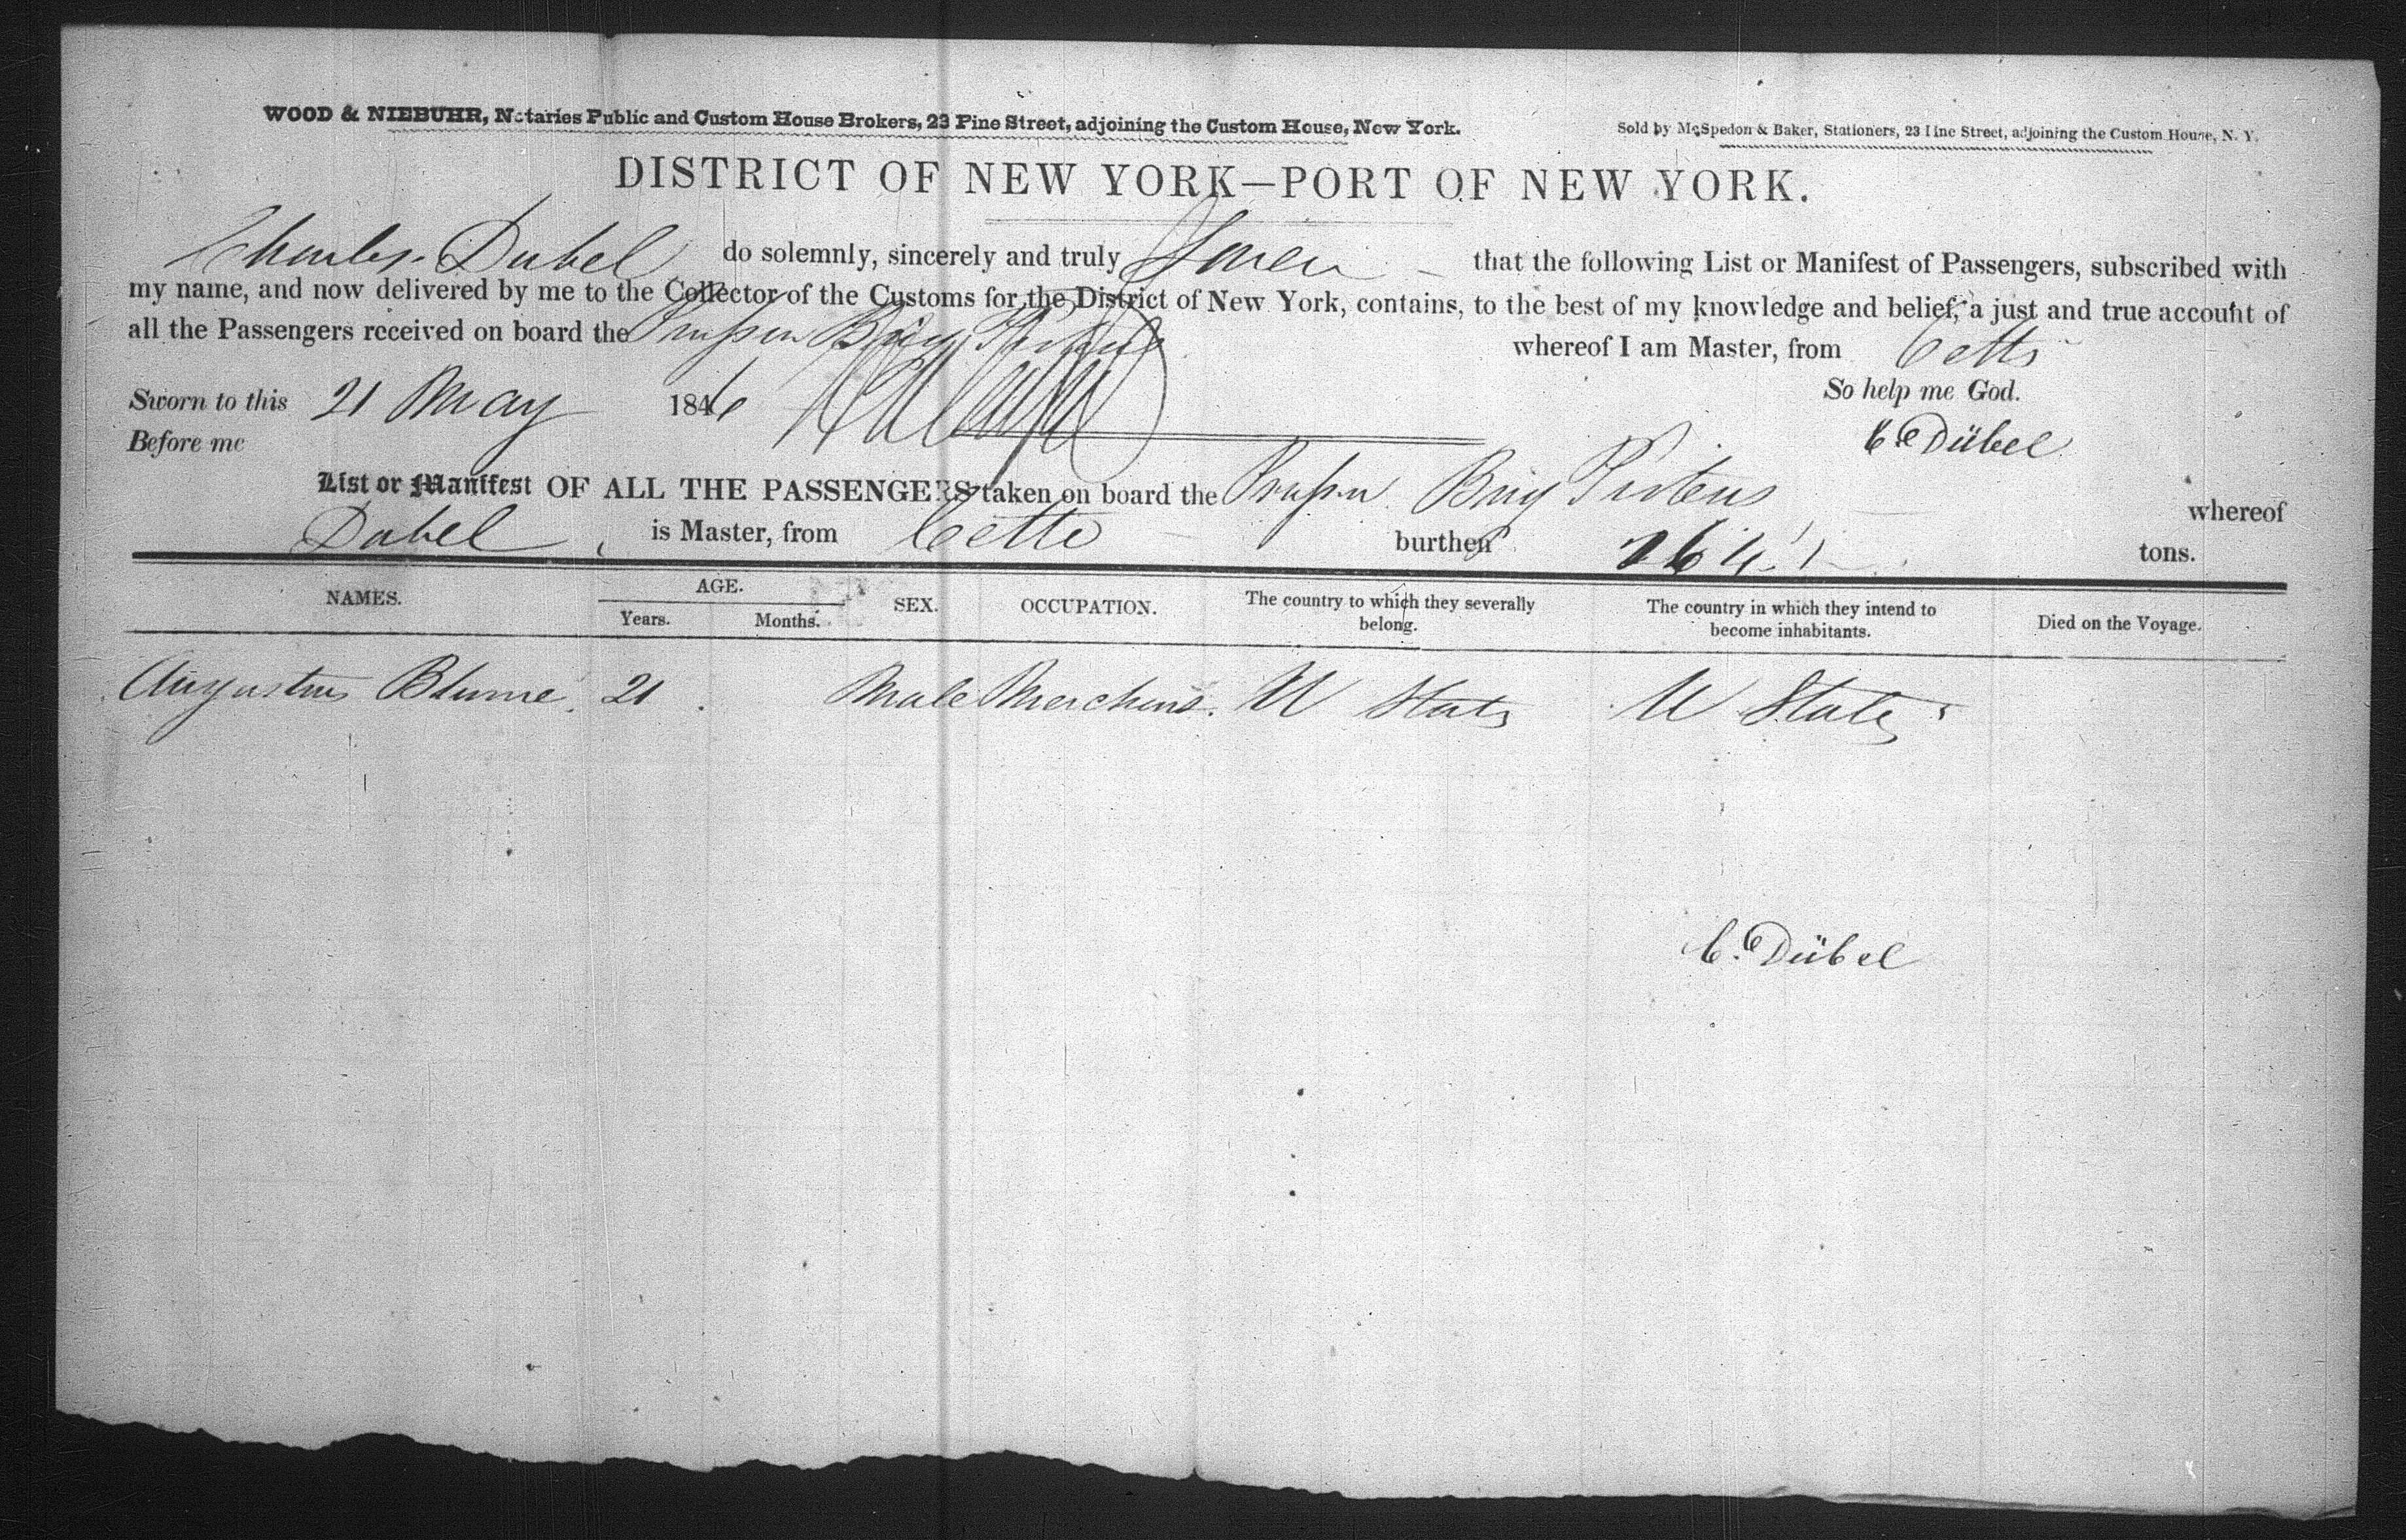 WOOD & NIEBUHR, Notaries Public and Custom House Brokers, 23 Pine Street, adjoining the Custom House, New York.
Sold by McSpedon & Baker, Stationers, 23 Pine Street, adjoining the Custom House, N. Y.
DISTRICT OF NEW YORK—PORT OF NEW YORK.
Charles Dubel do solemnly, sincerely and truly Swear that the following List or Manifest of Passengers, subscribed with
my name, and now delivered by me to the Collector of the Customs for the District of New York, contains, to the best of my knowledge and belief, a just and true account of
all the Passengers received on board the Prussn Brig whereof I am Master, from Cette
So help me God.
Sworn to this 21 May 1846
Before me
C. Dübel
List or Manifest OF ALL THE PASSENGERS taken on board the Prussn Brig whereof
Dubel is Master, from Cette burthen tons.
NAMES. AGE. SEX. OCCUPATION. The country to which they severally belong. The country in which they intend to become inhabitants. Died on the Voyage.
Years. Months.
Augustus Blume. 21 Male Merchant. U States U States
C. Dübel